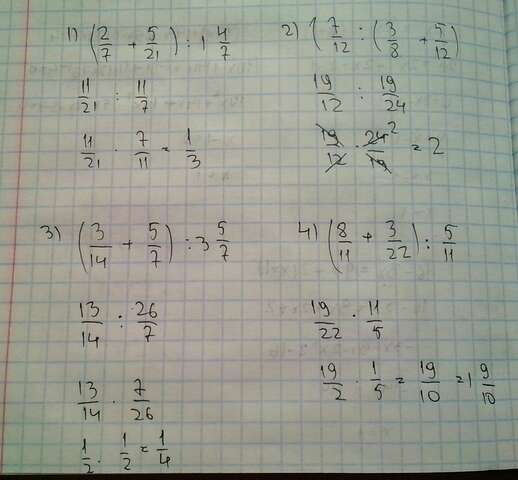 1) (2/7 + 5/21) : 1 4/7
11/21 : 11/7
11/21 · 7/11 = 1/3
2) 1 7/12 : (3/8 + 5/12)
19/12 : 19/24
19/12 · 24/19 ² = 2
3) (3/14 + 5/7) : 3 5/7
13/14 : 26/7
13/14 · 7/26
1/2 · 1/2 = 1/4
4) (8/11 + 3/22) : 5/11
19/22 · 11/5
19/2 · 1/5 = 19/10 = 1 9/10